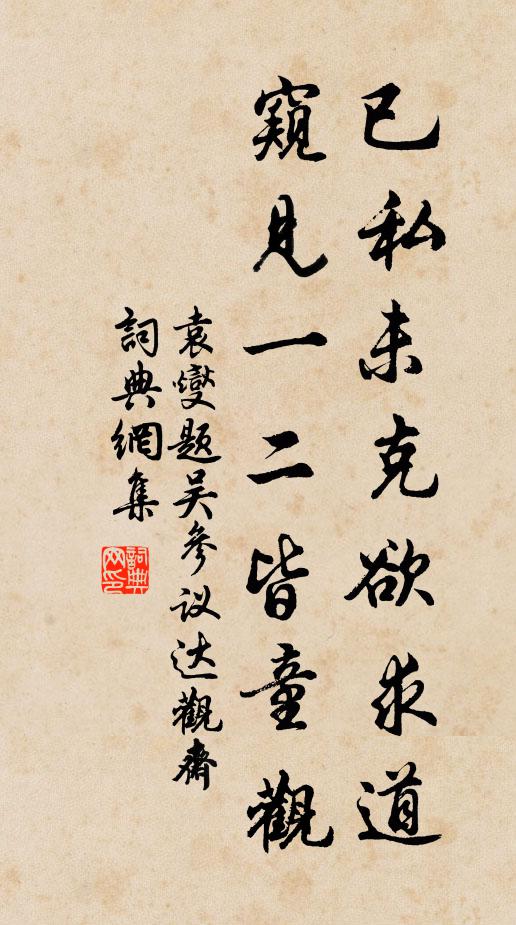 已私未克欲求道
窺見一二皆童觀
袁燮題吴參议达觀齋
詞典網集
詞典网印